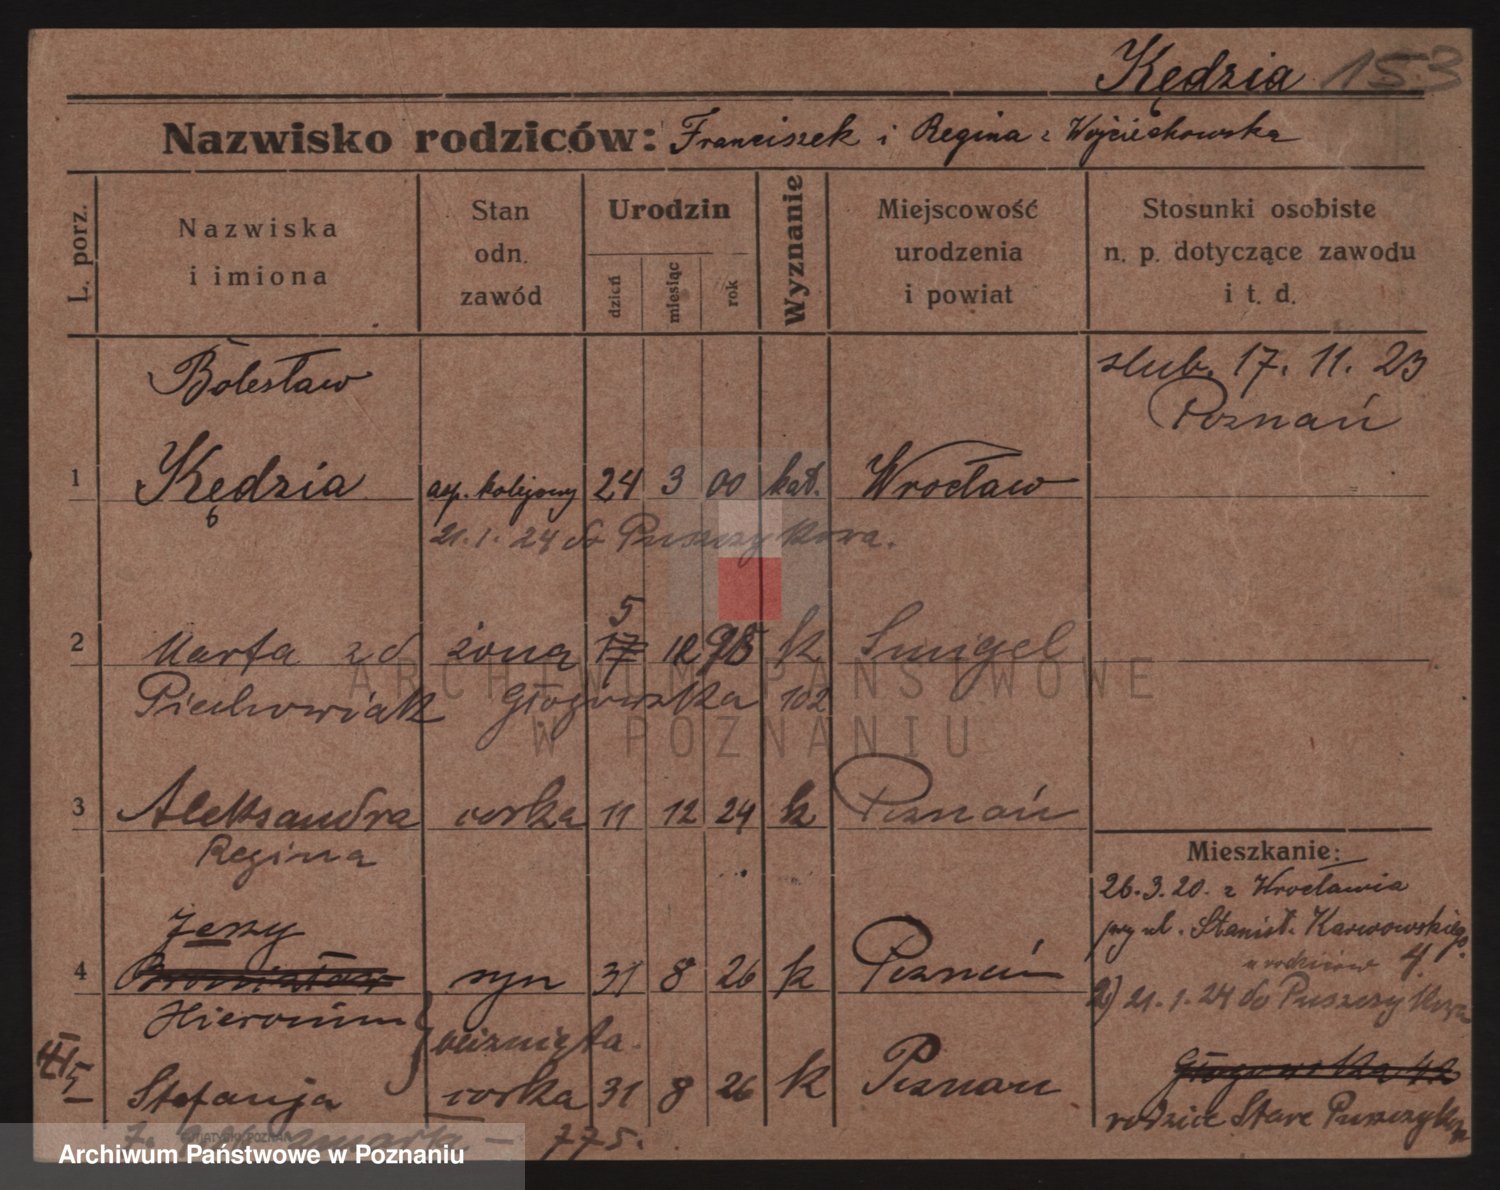 Kędzia 153
Nazwisko rodziców: Franciszek i Regina z Wojciechowska
L. porz.
Nazwiska
i imiona
Stan
odn.
zawód
Urodzin
dzień
miesiąc
rok
Wyznanie
Miejscowość
urodzenia
i powiat
Stosunki osobiste
n. p. dotyczące zawodu
i t. d.
Bolesław
ślub. 17. 11. 23
Poznań
1 Kędzia asp. kolejowy 24 3 00 kat. Wrocław
21.1.24 do Puszczykowa.
5
2 Marta zd żona 17 12 95 k Smigel
Piechowiak Głogowska 102
ARCHIWUM PAŃSTWOWE
W POZNANIU
3 Aleksandra corka 11 12 24 k Poznań
Regina
Mieszkanie:
26.3.20. z Wrocławia
przy ul. Stanisł. Karwowskiego
u rodziców 4.
2) 21.1.24 do Puszczykowa
Głogowska
rodzice Stare Puszczykowo
Jerzy
4 Bronisław syn 31 8 26 k Poznań
Hieronim
bliznięta.
5 Stefanja corka 31 8 26 k Poznań
zmarła — 775.
Archiwum Państwowe w Poznaniu